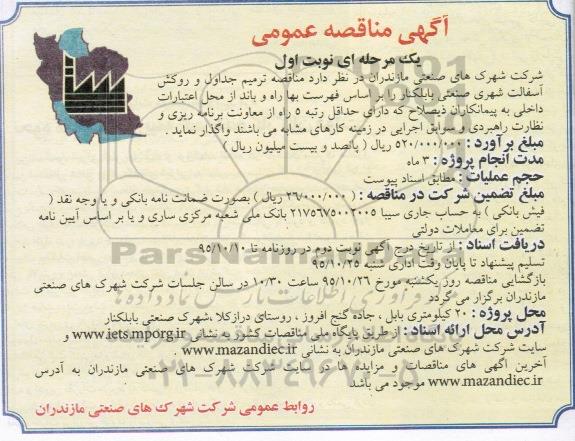 آگهی مناقصه عمومی
یک مرحله ای نوبت اول
شرکت شهرک های صنعتی مازندران در نظر دارد مناقصه ترمیم جداول و روکش
آسفالت شهری صنعتی بابلکنار را بر اساس فهرست بها راه و باند از محل اعتبارات
داخلی به پیمانکاران ذیصلاح که دارای حداقل رتبه ۵ راه از معاونت برنامه ریزی و
نظارت راهبردی و سوابق اجرایی در زمینه کارهای مشابه می باشند واگذار نماید .
مبلغ برآورد : ۵۲۰/۰۰۰/۰۰۰ ریال ( پانصد و بیست میلیون ریال )
مدت انجام پروژه : ۳ ماه
حجم عملیات : مطابق اسناد پیوست
مبلغ تضمین شرکت در مناقصه : ( ۲۶/۰۰۰/۰۰۰ ریال ) بصورت ضمانت نامه بانکی و یا وجه نقد (
فیش بانکی ) به حساب جاری سیبا ۲۱۷۵۶۷۵۰۰۲۰۰۵ بانک ملی شعبه مرکزی ساری و یا بر اساس آیین نامه
تضمین برای معاملات دولتی
دریافت اسناد : از تاریخ درج آگهی نوبت دوم در روزنامه تا ۹۵/۱۰/۱۰
تسلیم پیشنهاد تا پایان وقت اداری شنبه ۹۵/۱۰/۲۵
بازگشایی مناقصه روز یکشنبه مورخ ۹۵/۱۰/۲۶ ساعت ۱۰/۳۰ در سالن جلسات شرکت شهرک های صنعتی
مازندران برگزار می گردد
محل پروژه : ۲۰ کیلومتری بابل ، جاده گنج افروز ، روستای درازکلا ،شهرک صنعتی بابلکنار
آدرس محل ارائه اسناد : از طریق پایگاه ملی مناقصات کشور به نشانی www.iets.mporg.ir و
سایت شرکت شهرک های صنعتی مازندران به نشانی www.mazandiec.ir .
آخرین آگهی های مناقصات و مزایده ها در سایت شرکت شهرک های صنعتی مازندران به آدرس
www.mazandiec.ir موجود می باشد
روابط عمومی شرکت شهرک های صنعتی مازندران
ParsNamadData
۰۲۱-۸۸۳۴۹۶۷۰-۵